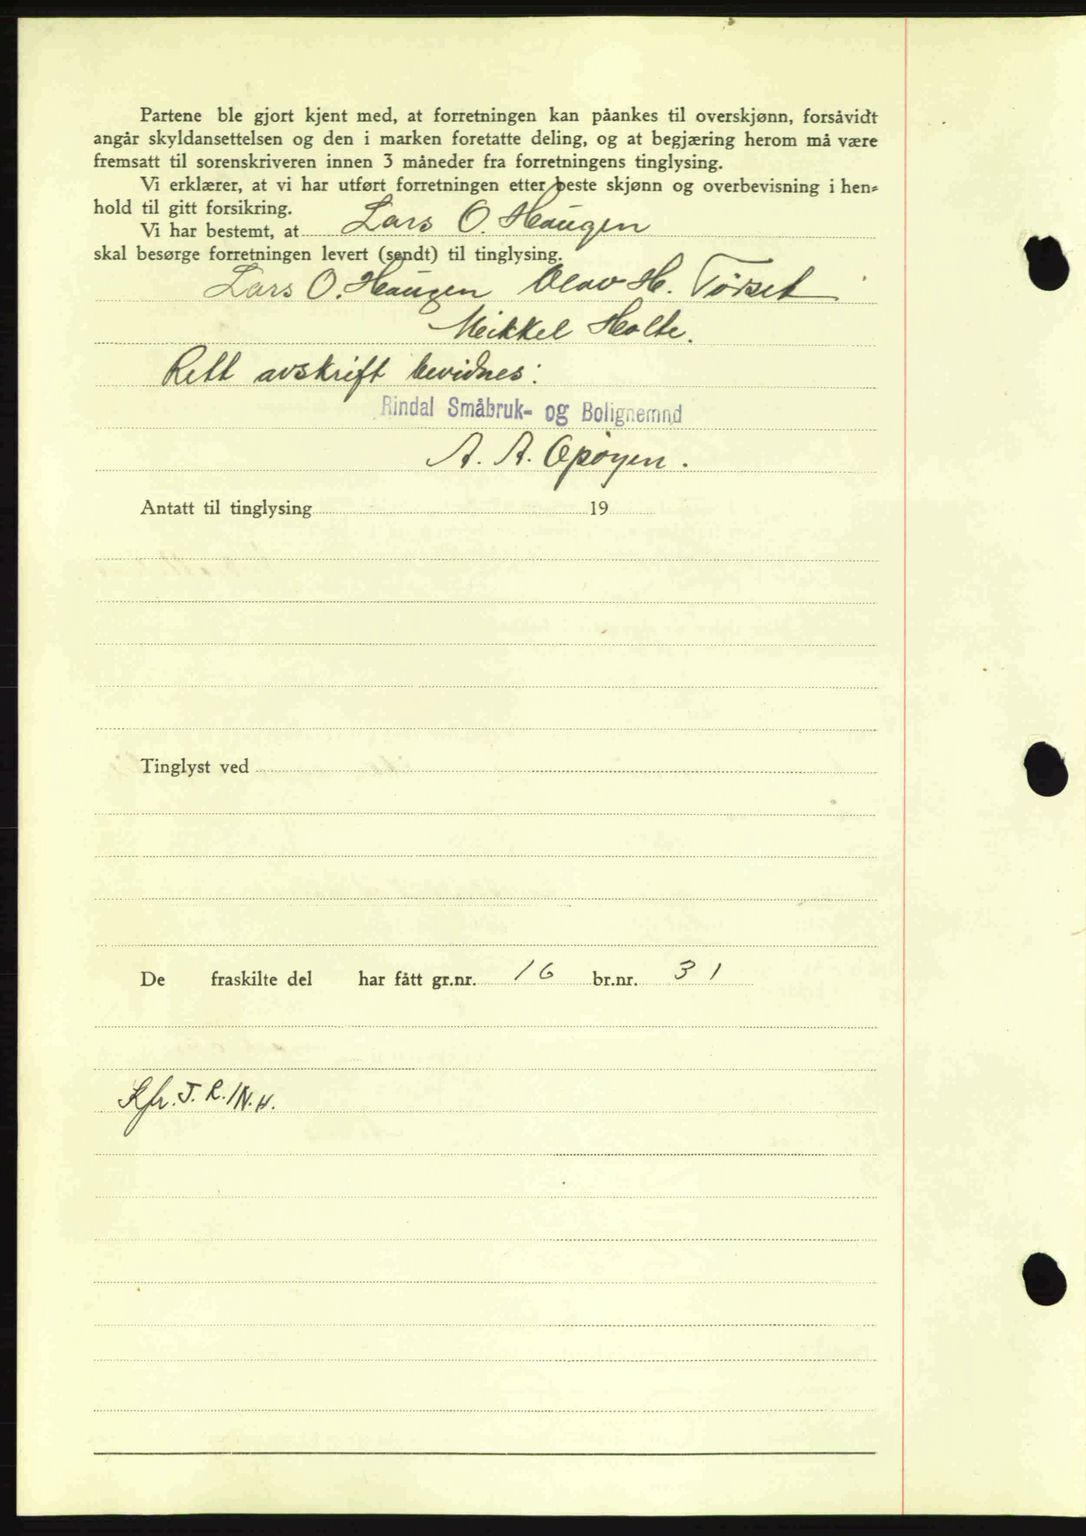 Partene ble gjort kjent med, at forretningen kan påankes til overskjønn, forsåvidt
angår skyldansettelsen og den i marken foretatte deling, og at begjæring herom må være
fremsatt til sorenskriveren innen 3 måneder fra forretningens tinglysing.
Vi erklærer, at vi har utført forretningen etter beste skjønn og overbevisning i hen-
hold til gitt forsikring.
Vi har bestemt, at Lars O. Haugen
skal besørge forretningen levert (sendt) til tinglysing.
Lars O. Haugen Olav H. Tørset
Mikkel Holte.
Rett avskrift bevidnes:
Rindal Småbruk- og Bolignemnd
A. A. Opøyen.
Antatt til tinglysing 19
Tinglyst ved
De fraskilte del har fått gr.nr. 16 br.nr. 31
Kfr. J. R. /N. H.